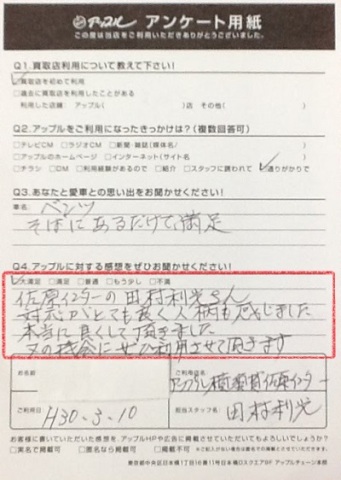 アップル アンケート用紙
この度は当店をご利用いただきありがとうございました。
Q1.買取店利用について教えて下さい!
☑買取店を初めて利用
□過去に買取店を利用したことがある
利用した店舗: アップル( )店 その他( )
Q2.アップルをご利用になったきっかけは?(複数回答可)
□テレビCM □ラジオCM □新聞・雑誌(媒体名/ )
□アップルのホームページ □インターネット(サイト名 )
□チラシ □DM □利用経験があるので □紹介 □スタッフに誘われて ☑通りがかりで
Q3.あなたと愛車との思い出をお聞かせください!
車名: ベンツ
そばにあるだけで満足
Q4.アップルに対する感想をぜひお聞かせください!
☑大満足 □満足 □普通 □もう少し □不満
佐原インターの田村利光さん
対応がとても良く人柄も感じました
本当に良くして頂きました
又の機会にぜひ利用させて頂きます
お名前
ご利用店名
アップル横須賀佐原インター
ご利用日
H30.3.10
担当スタッフ名
田村利光
お客様に書いていただいた感想を、アップルHPや広告に掲載させていただいてもよろしいでしょうか?
□実名で掲載可 □匿名なら掲載可 □掲載不可
東京都中央区日本橋1丁目16番11号日本橋Dスクエア8F アップルチェーン本部